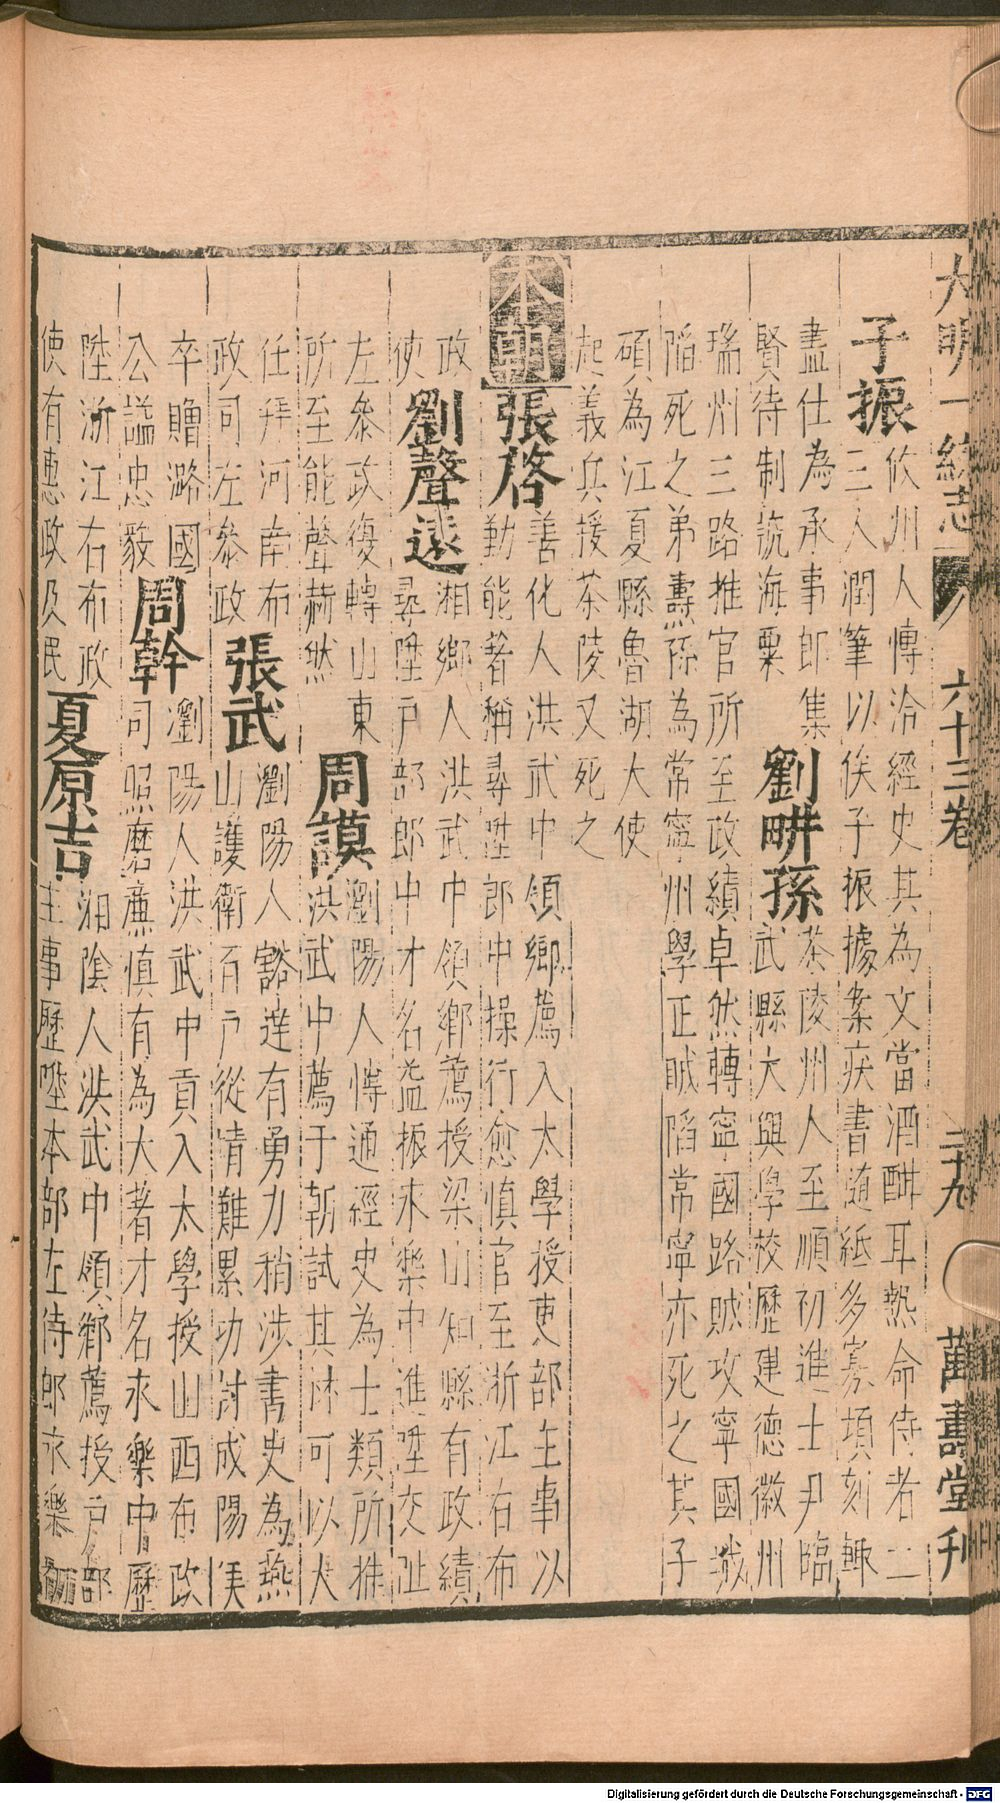 大明一統志 八 六十三卷 二十九 萬壽堂刊
子振
攸州人博洽經史其為文當酒酣耳熱命侍者二
三人潤筆以俟子振據案疾書隨紙多寡頃刻輒
盡仕為承事郎集
賢待制號海粟
劉畊孫
茶陵州人至順初進士尹臨
武縣大興學校歷建德徽州
瑞州三路推官所至政績卓然轉寧國路賊攻寧國城
陷死之弟燾孫為常寧州學正賊陷常寧亦死之其子
碩為江夏縣魯湖大使
起義兵援茶陵又死之
本朝
張啓
善化人洪武中領鄉薦入太學授吏部主事以
勤能著稱尋陞郎中操行愈慎官至浙江右布
政
使
劉聲遠
湘鄉人洪武中領鄉薦授梁山知縣有政績
尋陞戶部郎中才名益振永樂中進陞交阯
左叅政復轉山東
所至能聲赫然
周謨
瀏陽人博通經史為士類所推
洪武中薦于朝試其材可以大
任拜河南布
政司左叅政
張武
瀏陽人豁達有勇力稍涉書史為燕
山護衛百戶從靖難累功封成陽侯
卒贈潞國
公謚忠毅
周幹
瀏陽人洪武中貢入太學授山西布政
司照磨廉慎有為大著才名永樂中歷
陞浙江右布政
使有惠政及民
夏原吉
湘陰人洪武中領鄉薦授戶部
主事歷陞本部左侍郎永樂初
Digitalisierung gefördert durch die Deutsche Forschungsgemeinschaft - DFG